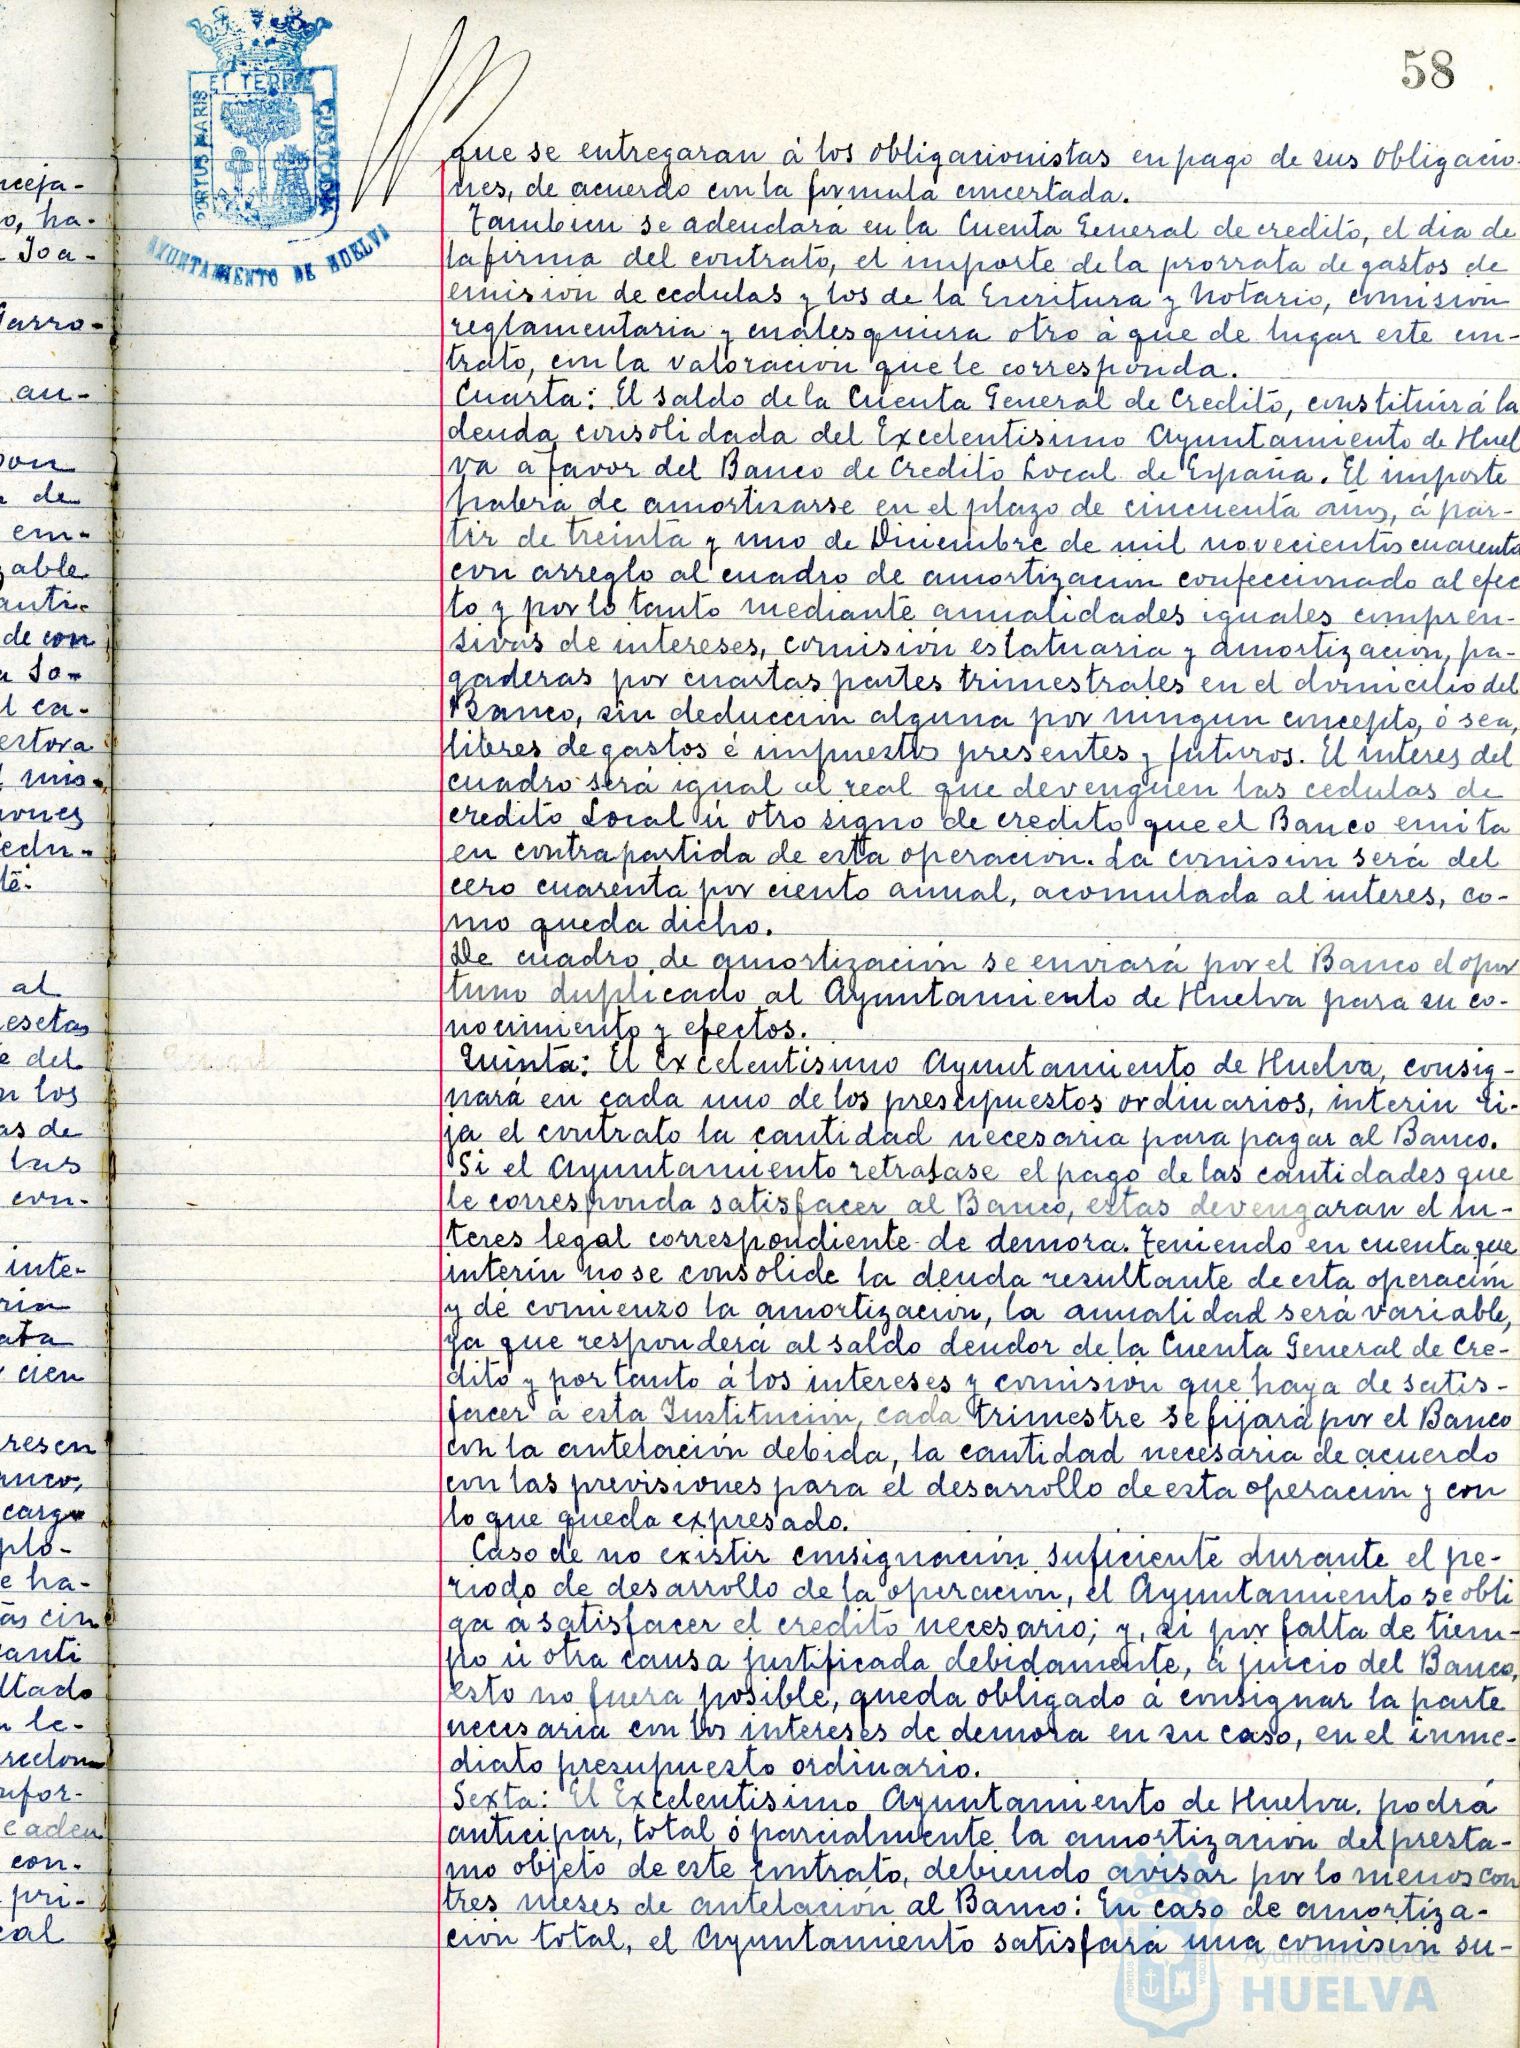 58
PORTUS MARIS ET TERRÆ CUSTODIA
AYUNTAMIENTO DE HUELVA
que se entregaran á los obligacionistas en pago de sus obligacio-
nes, de acuerdo con la formula concertada.
Tambien se adeudará en la Cuenta General de credito, el dia de
la firma del contrato, el importe de la prorrata de gastos de
emision de cedulas y los de la Escritura y Notario, comisión
reglamentaria y cualesquiera otro á que de lugar este con-
trato, con la valoracion que le corresponda.
Cuarta: El saldo de la Cuenta General de Credito, constituirá la
deuda consolidada del Excelentisimo Ayuntamiento de Huel
va a favor del Banco de Credito Local de España. El importe
habrá de amortizarse en el plazo de cincuenta años, á par-
tir de treinta y uno de Diciembre de mil novecientos cuarenta
con arreglo al cuadro de amortizacion confeccionado al efec
to y por lo tanto mediante anualidades iguales compren-
sivas de intereses, comisión estatuaria y amortización, pa-
gaderas por cuartas partes trimestrales en el domicilio del
Banco, sin deduccion alguna por ningun concepto, ó sea,
libres de gastos é impuestos presentes y futuros. El interes del
cuadro será igual al real que devenguen las cedulas de
credito Local ú otro signo de credito que el Banco emita
en contrapartida de esta operacion. La comision será del
cero cuarenta por ciento anual, acomulada al interes, co-
mo queda dicho.
De cuadro de amortización se enviará por el Banco el opor
tuno duplicado al Ayuntamiento de Huelva para su co-
nocimiento y efectos.
Quinta: El Excelentisimo Ayuntamiento de Huelva, consig-
nará en cada uno de los presupuestos ordinarios, interin ri-
ja el contrato la cantidad necesaria para pagar al Banco.
Si el Ayuntamiento retrasase el pago de las cantidades que
le corresponda satisfacer al Banco, estas devengaran el in-
teres legal correspondiente de demora. Teniendo en cuenta que
interin no se consolide la deuda resultante de esta operación
y dé comienzo la amortización, la anualidad será variable,
ya que responderá al saldo deudor de la Cuenta General de Cre-
dito y por tanto á los intereses y comisión que haya de satis-
facer á esta Institución, cada trimestre se fijará por el Banco
con la antelación debida, la cantidad necesaria de acuerdo
con las previsiones para el desarrollo de esta operacion y con
lo que queda expresado.
Caso de no existir consignación suficiente durante el pe-
riodo de desarrollo de la operacion, el Ayuntamiento se obli
ga á satisfacer el credito necesario; y, si por falta de tiem-
po ú otra causa justificada debidamente, á juicio del Banco,
esto no fuera posible, queda obligado á consignar la parte
necesaria con los intereses de demora en su caso, en el inme-
diato presupuesto ordinario.
Sexta: El Excelentisimo Ayuntamiento de Huelva, podrá
anticipar, total ó parcialmente la amortización del presta-
mo objeto de este contrato, debiendo avisar por lo menos con
tres meses de antelación al Banco: En caso de amortiza-
cion total, el Ayuntamiento satisfará una comision su-
Ayuntamiento de
HUELVA